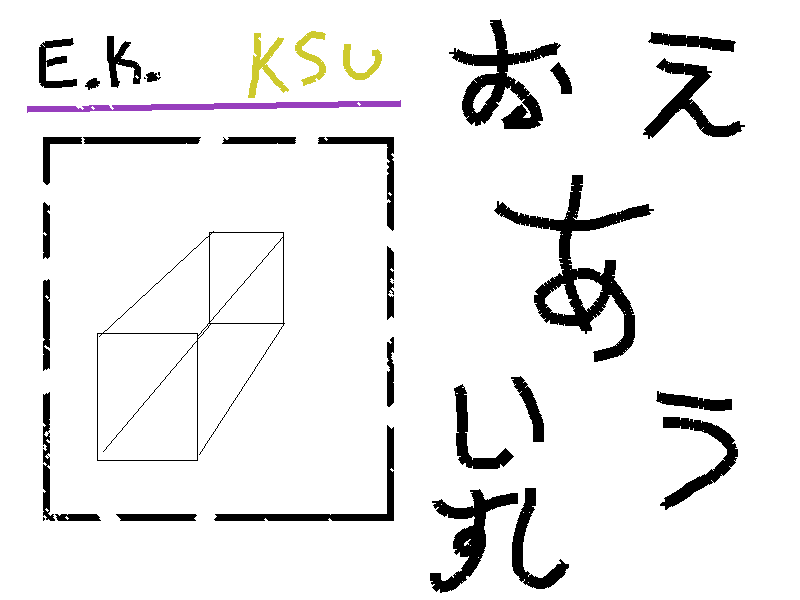 E.K. KSU
お え
あ
い う
すし